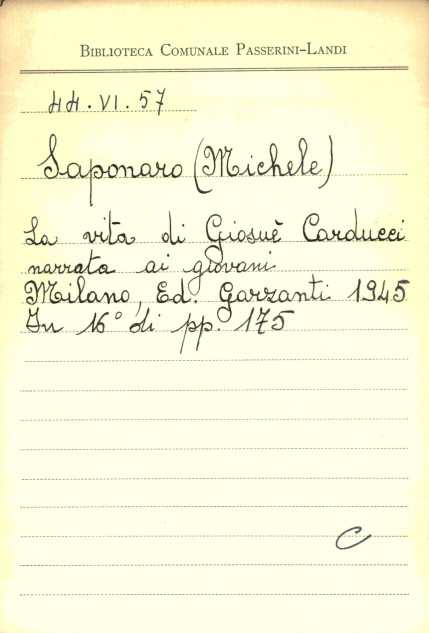 BIBLIOTECA COMUNALE PASSERINI-LANDI
44.VI.57
Saponaro (Michele)
La vita di Giosuè Carducci
narrata ai giovani
Milano, Ed. Garzanti 1945
In 16° di pp. 175
C